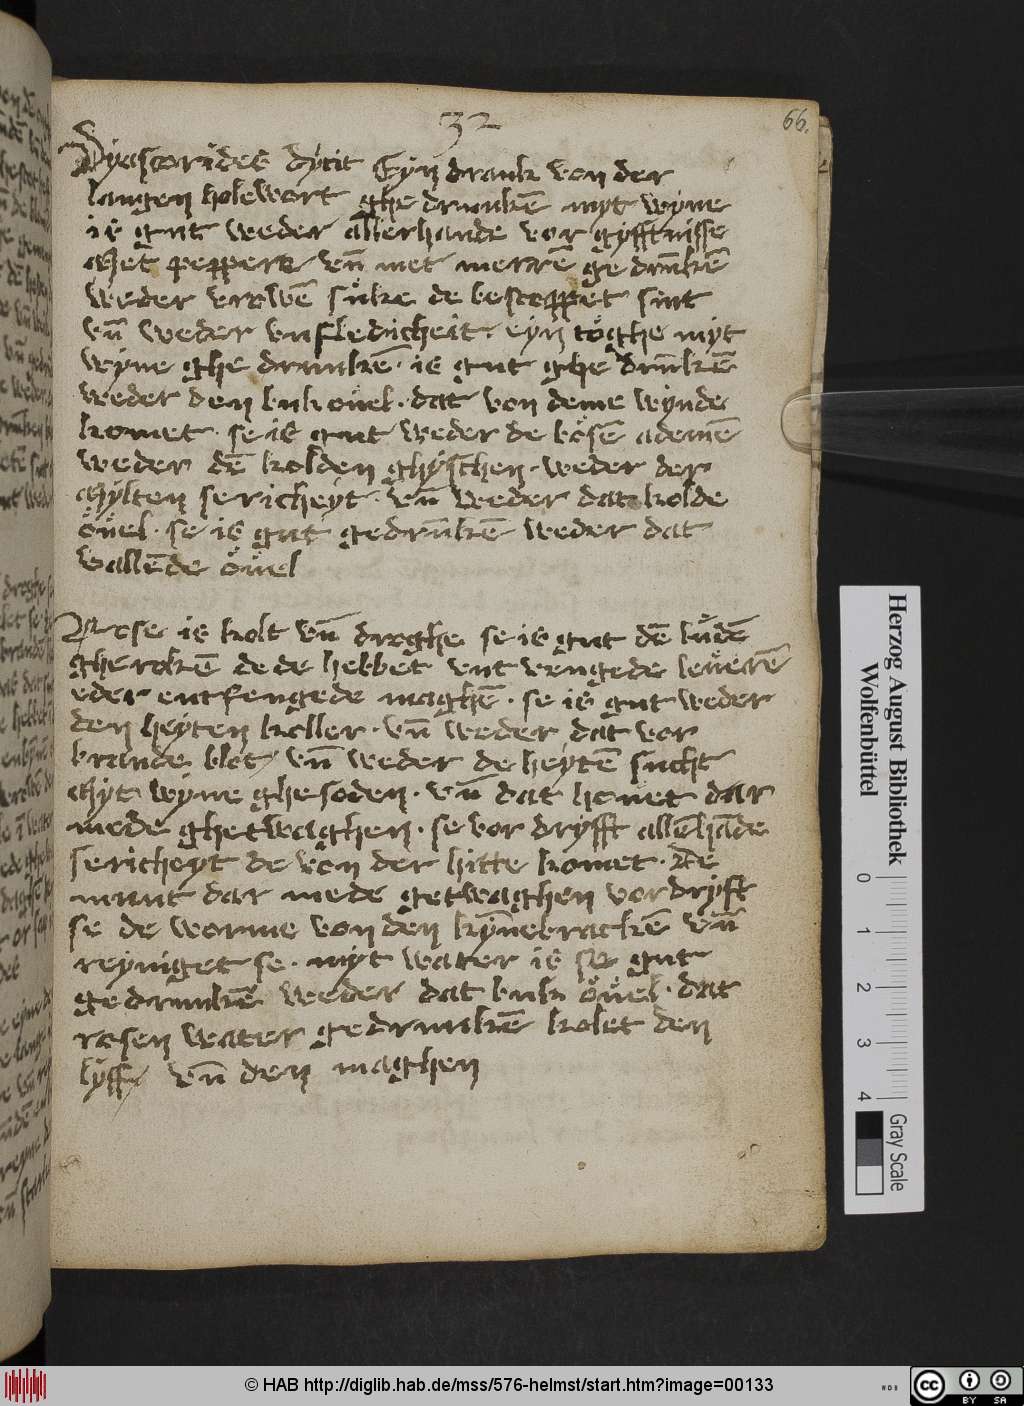 32
66.
Dyascorides dycit Eyn drank von der
langen holewort ghe drunkē myt wyne
is gut weder allerhande vor gyfftnisse
Met pepper vn̄ met merrē ge drūkē
weder vrowē sůke de bestoppet sint
vn̄ weder vnfledicheit · eyn tőghe myt
wyne ghe drunkē · is gut ghe drūkē
weder den buk ouel · dat von deme wynde
komet · se is gut weder de bősē ademē
weder dē kolden ghyschen · weder der
mylten sericheyt · vn̄ weder dat kolde
őuel · se is gut gedrūkē weder dat
vallēde őuel
Rose is kolt vn̄ droghe se is gut dē lůdē
gherokē de de hebbet vnt vengede leuerē
eder entfengede maghē · se is gut weder
den heyten koller · vn̄ weder dat vor
brande blot / vn̄ weder de heytē sucht
Myt wyne ghesoden · vn̄ dat houet dar
mede ghetwaghen · se vor dryfft allēhāde
sericheyt de von der hitte komet · De
munt dar mede getwaghen vordryft
se de worme von den kynnebackē vn̄
reyniget se · myt water is se gut
gedrunkē weder dat buk őuel · dat
rosen water gedrunkē kolet den
lyff / vn̄ den maghen
Herzog August Bibliothek
Wolfenbüttel
0 1 2 3 4
Gray Scale
© HAB http://diglib.hab.de/mss/576-helmst/start.htm?image=00133
WDB
cc BY SA